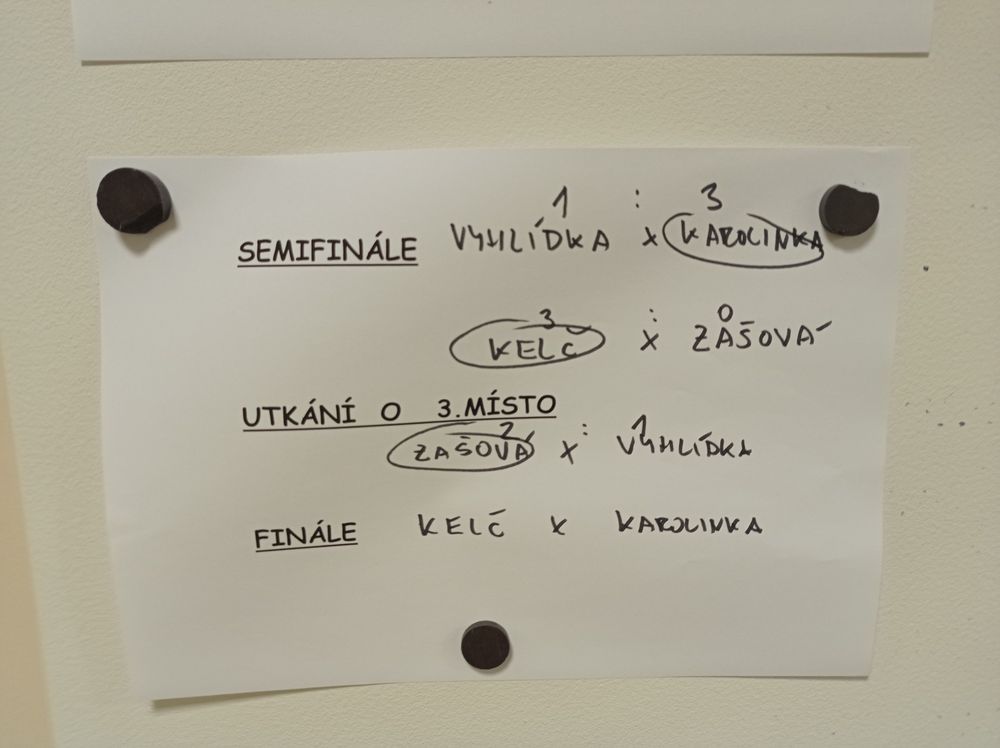 1 : 3
SEMIFINÁLE VYHLÍDKA x KAROLINKA
3 : 0
KELČ x ZAŠOVÁ
UTKÁNÍ O 3.MÍSTO
2 : 1
ZAŠOVÁ x VYHLÍDKA
FINÁLE KELČ x KAROLINKA